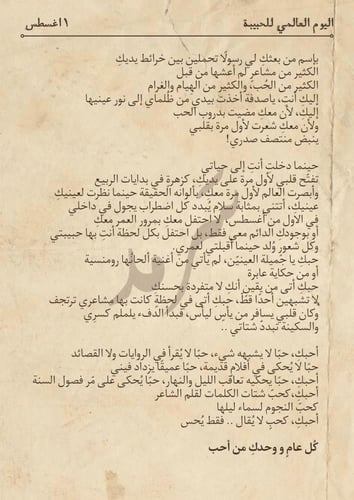 اليوم العالمي للحبيبة
١ اغسطس
بإسم من بعثكِ لي رسولًا تحملين بين خرائط يديكِ
الكثير من مشاعر لم أعشها من قبل
الكثير من الحُب، والكثير من الهيام والغرام
إليكِ أنت، ياصدفة أخذت بيدي من ظلماي إلى نور عينيها
إليكِ، لأن معكِ مضيت بدروب الحب
ولأن معكِ شعرت لأول مرة بقلبي
ينبض منتصف صدري!
حينما دخلت أنت إلى حياتي
تفتّح قلبي لأول مرة على يديكِ، كزهرة في بدايات الربيع
وأبصرت العالم لأول مرة معكِ، بألوانه الحقيقة حينما نظرت لعينيكِ
عينيكِ، أتتني بمثابة سلام يُبدد كل اضطراب يجول في داخلي
في الأول من أغسطس، لا احتفل معكِ بمرور العمر معكِ
أو بوجودكِ الدائم معي فقط، بل احتفل بكل لحظة أنت بها حبيبتي
وكل شعور وُلد حينما أقبلتي لعمري.
حبك يا جميلة العينيّن، لم يأتي من أغنية ألحانُها رومنسية
أو من حكاية عابرة
حبكِ أتى من يقين أنكِ لا متفردة بحسنكِ
لا تشبهين أحدًا قطّ، حبكِ أتى في لحظة كانت بها مشاعري ترتجف
وكان قلبي يسافر من يأسٍ ليأس، فبدأ الدفء يلملم كسري
والسكينة تبددّ شتاتي ..
أحبكِ، حبًا لا يشبهه شيء، حبًا لا يُقرأ في الروايات ولا القصائد
حبًا لا يُحكى في أفلام قديمة، حبًا عميقًا يزداد فيني
أحبكِ، حبًا يحكيه تعاقب الليل والنهار، حبًا يُحكى على مَر فصول السنة
أحبكِ، كحب شتات الكلمات لقلم الشاعر
كحب النجوم لسماء ليلها
أحبكِ، كحب لا يُقال .. فقط يُحس
كُل عامٍ و وحدكِ من أحب